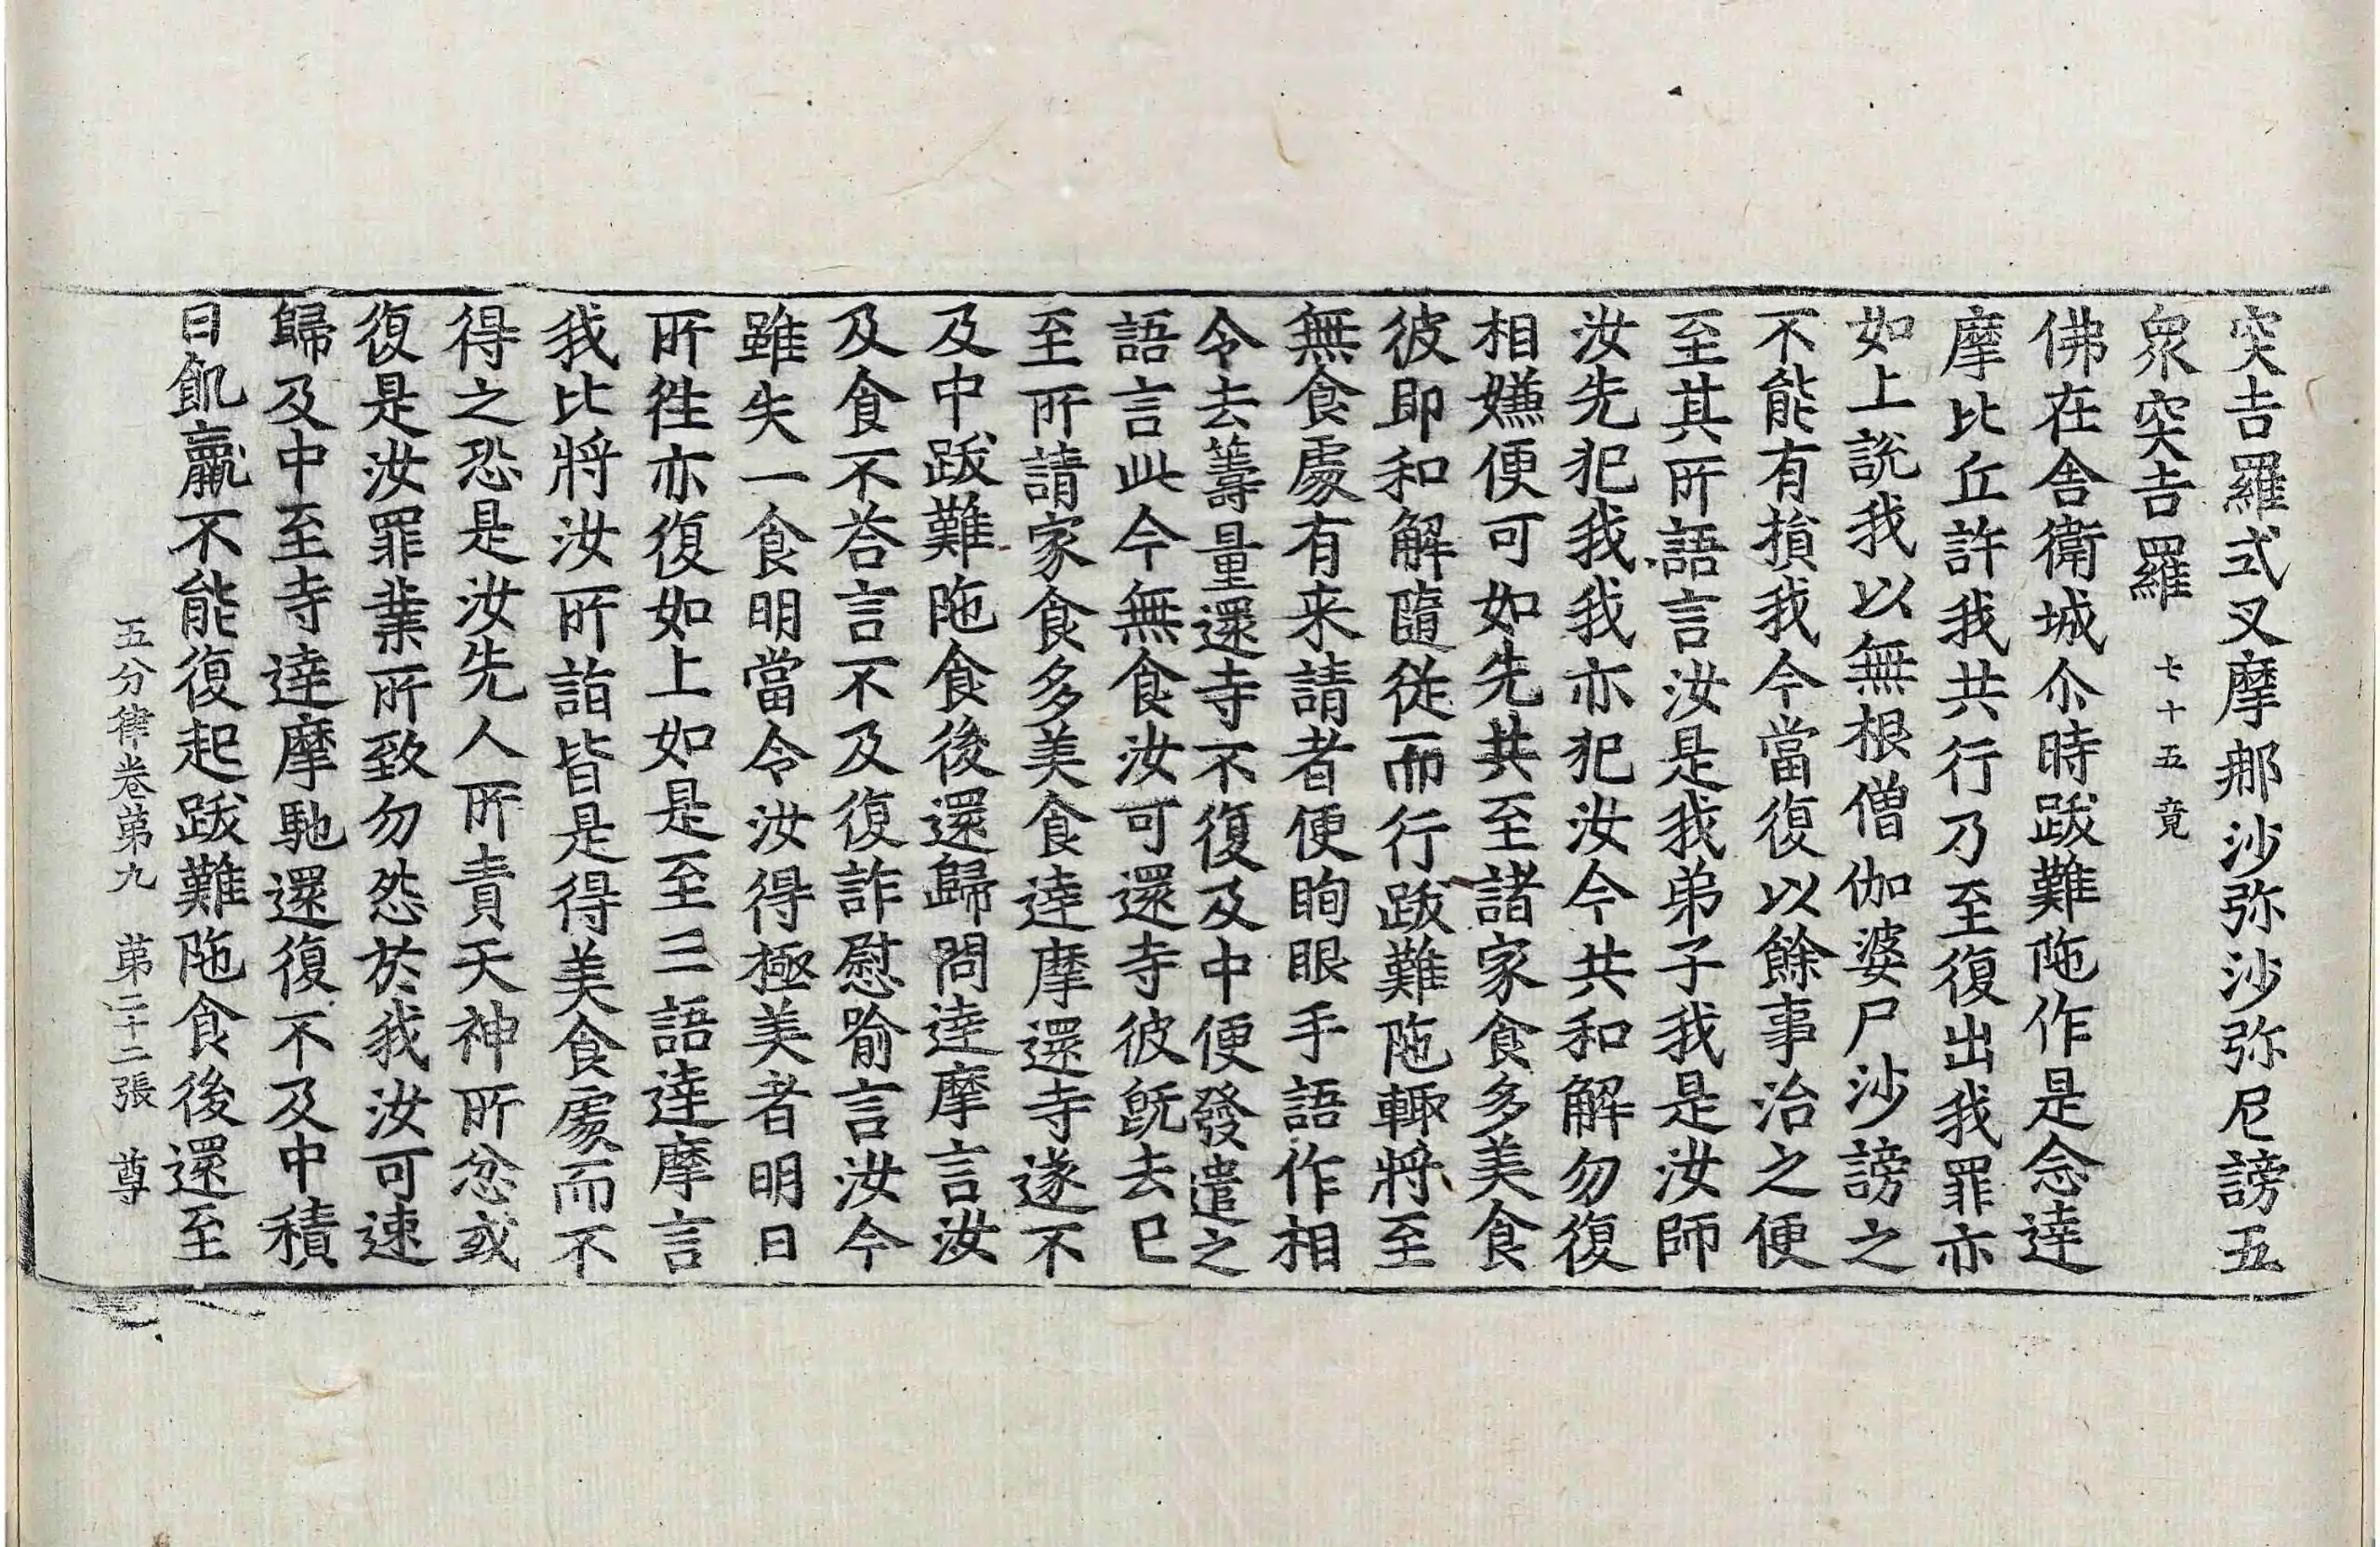 突吉羅式叉摩那沙弥沙弥尼謗五
衆突吉羅 七十五竟
佛在舎衛城尒時跋難陁作是念達
摩比丘許我共行乃至復出我罪亦
如上說我以無根僧伽婆尸沙謗之
不能有損我今當復以餘事治之便
至其所語言汝是我弟子我是汝師
汝先犯我我亦犯汝今共和解勿復
相嫌便可如先共至諸家食多美食
彼即和解隨從而行跋難陁輙將至
無食處有来請者便眴眼手語作相
令去籌量還寺不復及中便發遣之
語言此今無食汝可還寺彼旣去已
至所請家食多美食達摩還寺遂不
及中跋難陁食後還歸問達摩言汝
及食不荅言不及復詐慰喻言汝今
雖失一食明當令汝得極美者明日
所徃亦復如上如是至三語達摩言
我比將汝所詣皆是得美食處而不
得之恐是汝先人所責天神所忿或
復是汝罪業所致勿怨於我汝可速
歸及中至寺達摩馳還復不及中積
日飢羸不能復起跋難陁食後還至
五分律卷第九 第二十二張 尊